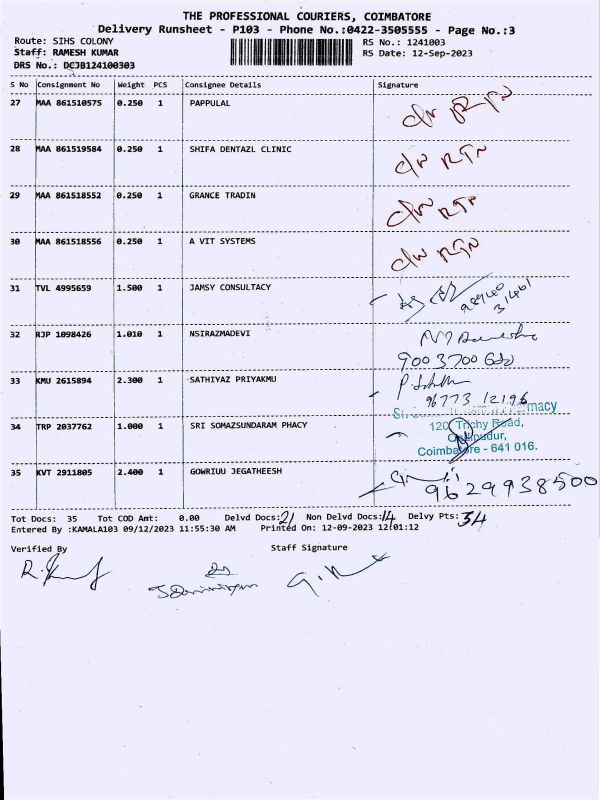 THE PROFESSIONAL COURIERS, COIMBATORE
Delivery Runsheet - P103 - Phone No.:0422-3505555 - Page No.:3
Route: SIHS COLONY RS No.: 1241003
Staff: RAMESH KUMAR RS Date: 12-Sep-2023
DRS No.: DCJB124100303
S No Consignment No Weight PCS Consignee Details Signature
27 MAA 861510575 0.250 1 PAPPULAL
28 MAA 861519584 0.250 1 SHIFA DENTAZL CLINIC C/N RTN
29 MAA 861518552 0.250 1 GRANCE TRADIN C/N RTN
30 MAA 861518556 0.250 1 A VIT SYSTEMS C/N RTN
31 TVL 4995659 1.500 1 JAMSY CONSULTACY
32 RJP 1098426 1.010 1 NSIRAZMADEVI
33 KMU 2615894 2.300 1 SATHIYAZ PRIYAKMU
96773 12196
34 TRP 2037762 1.000 1 SRI SOMAZSUNDARAM PHACY
120, Trichy Road,
Coimbatore - 641 016.
35 KVT 2911805 2.400 1 GOWRIUU JEGATHEESH
9629938500
Tot Docs: 35 Tot COD Amt: 0.00 Delvd Docs: 21 Non Delvd Docs: 14 Delvy Pts: 34
Entered By :KAMALA103 09/12/2023 11:55:30 AM Printed On: 12-09-2023 12:01:12
Verified By Staff Signature